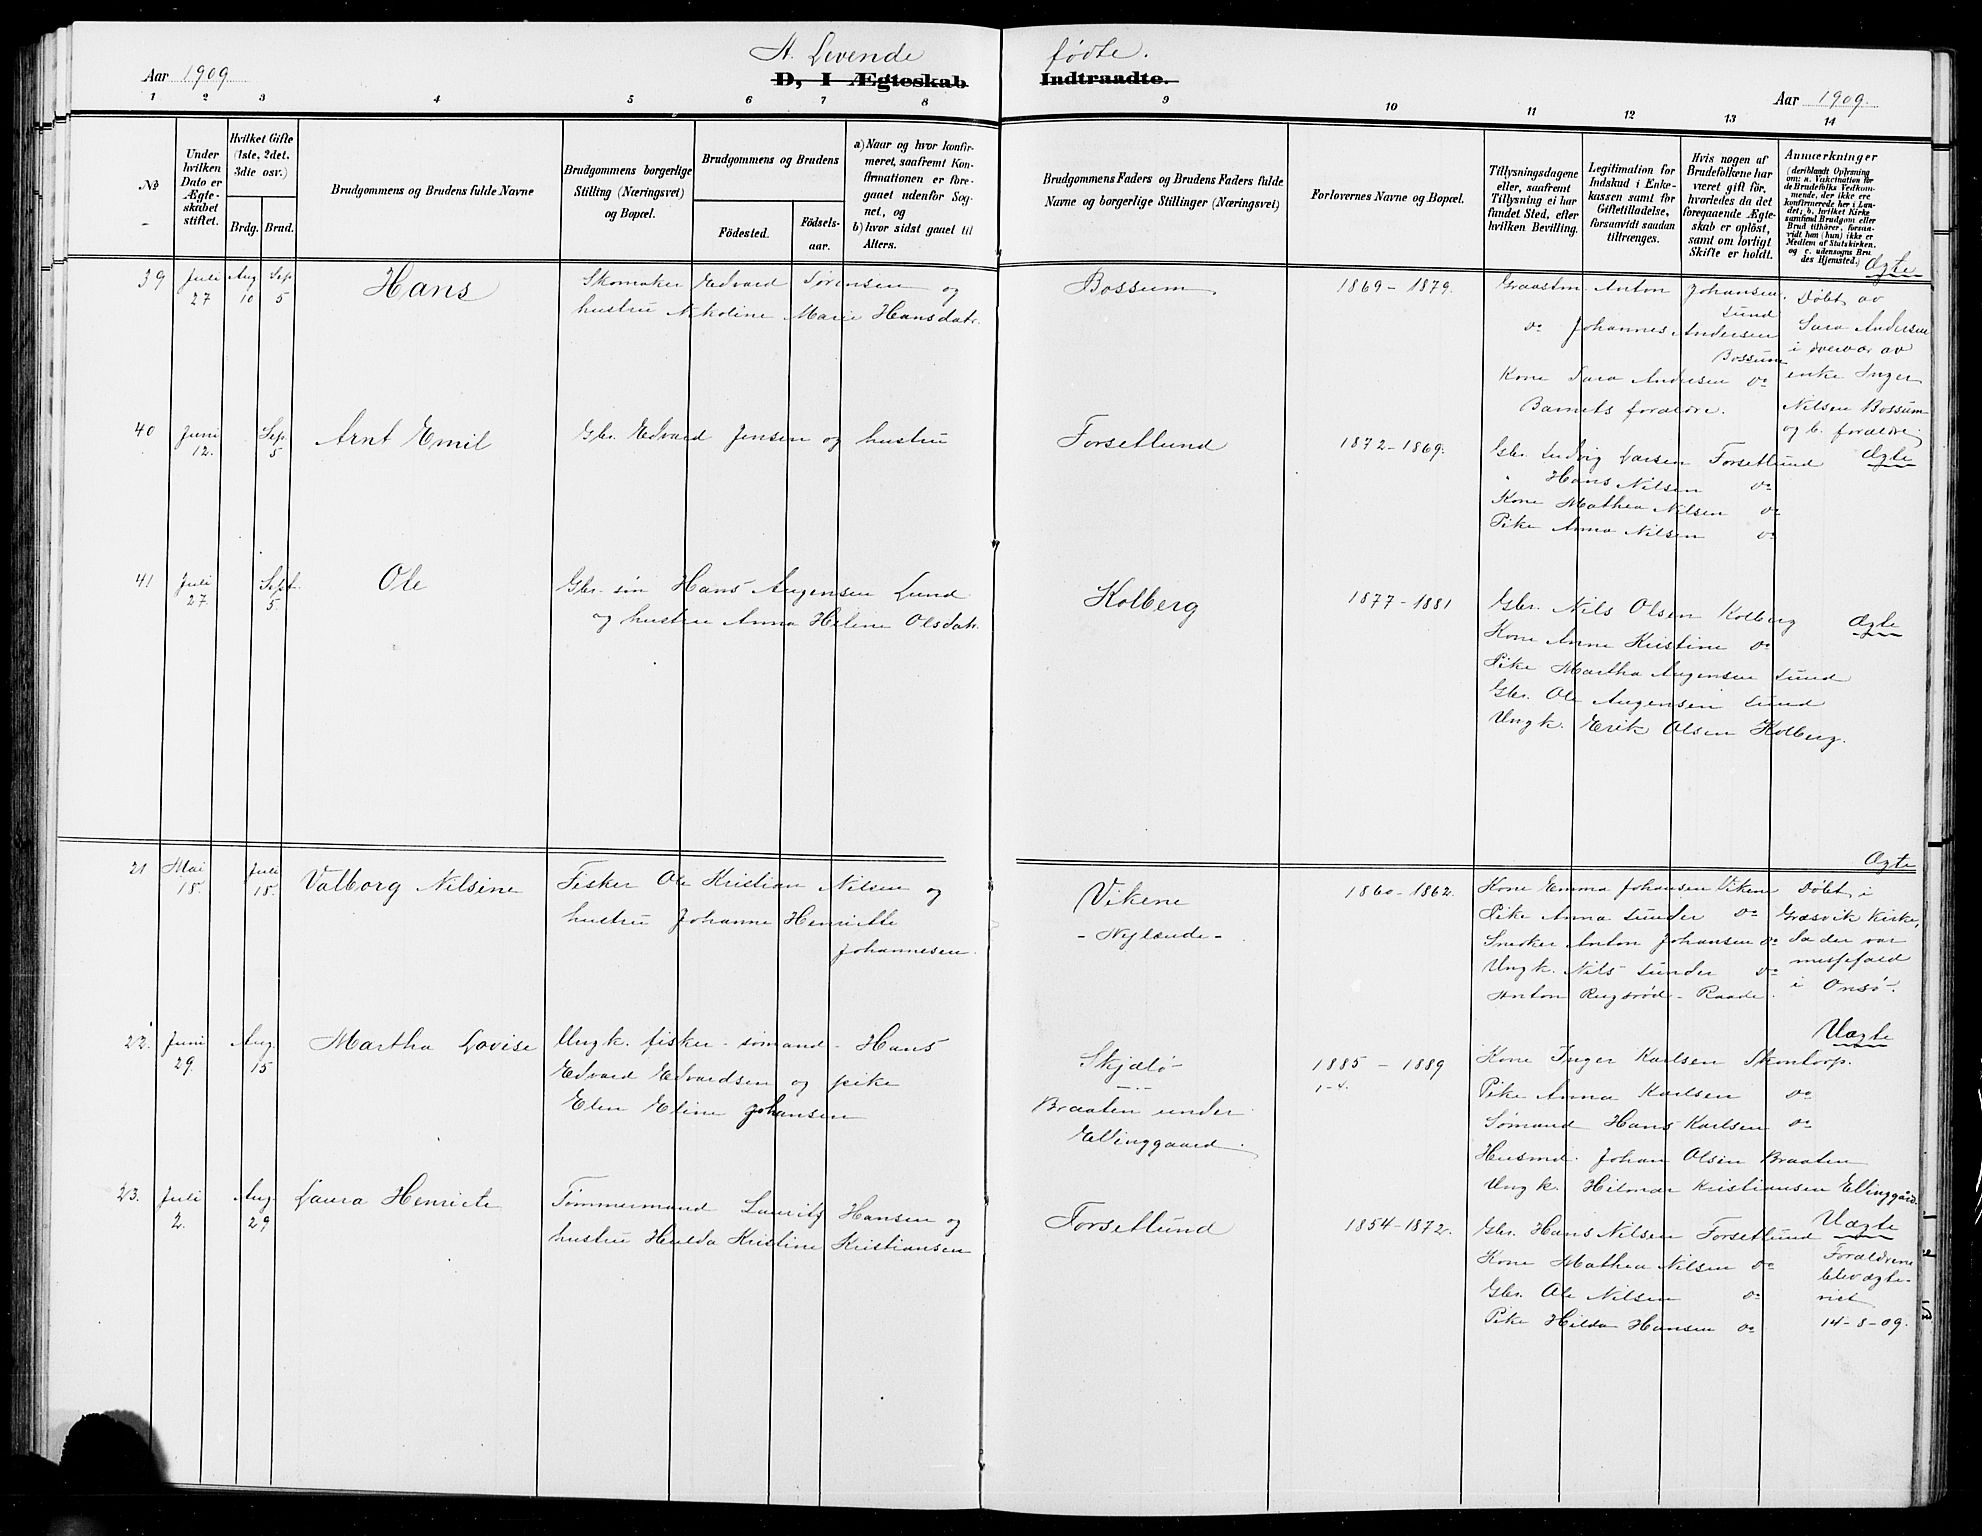 Aar 1909.
A. Levende fødte.
D, I Ægteskab Indtraadte.
Aar 1909.
1 2 3 4 5 6 7 8 9 10 11 12 13 14
No
Under hvilken Dato er Ægteskabet stiftet.
Hvilket Gifte (1ste, 2det, 3die osv.)
Brdg. Brud.
Brudgommens og Brudens fulde Navne
Brudgommens borgerlige Stilling (Næringsvei) og Bopæl.
Brudgommens og Brudens
Fødested.
Fødselsaar.
a) Naar og hvor konfirmeret, saafremt Konfirmationen er foregaaet udenfor Sognet, og
b) hvor sidst gaaet til Alters.
Brudgommens Faders og Brudens Faders fulde Navne og borgerlige Stillinger (Næringsvei)
Forlovernes Navne og Bopæl.
Tillysningsdagene eller, saafremt Tillysning ei har fundet Sted, efter hvilken Bevilling.
Legitimation for Indskud i Enkekassen samt for Giftetilladelse, forsaavidt saadan tiltrænges.
Hvis nogen af Brudefolkene har været gift før, hvorledes da det foregaaende Ægteskab er opløst, samt om lovligt Skifte er holdt.
Anmærkninger
(deriblandt Oplysning om: a. Vakcination for de Brudefolks Vedkommende, der ikke ere konfirmerede her i Landet; b. hvilket Kirkesamfund Brudgom eller Brud tilhører, forsaavidt han (hun) ikke er Medlem af Statskirken, og c. udensogns Brudes Hjemsted.)
39 Juli 27 Aug 10 Sep 5 Hans
Skomaker Edvard Sørensen og
hustru Nikoline Marie Hansdatr.
Bossum.
1869-1879.
Graastm. Anton Johansen
Lund
do Johannes Andersen
Bossum
Kone Sara Andersen do
Barnets forældre.
Ægte
Døbt av
Sara Andersen
i overvær av
enke Inger
Nilsen Bossum
og b. forældre.
40 Juni 12. Sep. 5 Arnt Emil
Gbr. Edvard Jensen og hustru
Forsetlund
1872-1869.
Gbr. Ludvig Larsen Forsetlund
" Hans Nilsen do
Kone Mathea Nilsen do
Pike Anna Nilsen do
Ægte
41 Juli 27. Sept. 5 Ole
Gbr. søn Hans Augensen Lund
og hustru Anna Helene Olsdatr.
Kolberg
1877-1881
Gbr. Nils Olsen Kolberg
Kone Anne Kristine do
Pike Martha Augensen Lund
Gbr. Ole Augensen Lund
Ungk. Erik Olsen Kolberg.
Ægte
21 Mai 18. Juli 18. Valborg Nilsine
Fisker Ole Kristian Nilsen og
hustru Johanne Henriette
Johannesen.
Vikene
- Nylænde -
1860-1862.
Kone Emma Johansen Viken
Pike Anna Lunder do
Snedker Anton Johansen do
Ungk. Nils Lunder do
Anton Rugsrød - Raade.
Ægte
Døbt i
Græsvik Kirke,
da der var
messefald
i Onsø.
22. Juni 29. Aug. 15 Martha Lovise
Ungk. fisker - sømand - Hans
Edvard Edvardsen og pike
Elen Eline Johansen
Skjælø
- " -
Braaten under
Ellinggaard.
1885 - 1889
1-4.
Kone Inger Karlsen Skontorp.
Pike Anna Karlsen do
Sømand Hans Karlsen do
Husmd. Johan Olsen Braaten
Ungk. Hilmar Kristiansen Ellinggård.
Uægte
23. Juli 2. Aug. 29 Laura Henriete
Tømmermand Lauritz Hansen og
hustru Hulda Kristine Kristiansen
Forsetlund
1854-1872.
Gbr. Hans Nilsen Forsetlund
Kone Mathea Nilsen do
Gbr. Ole Nilsen do
Pike Hilda Hansen do
Uægte
Forældrene
blev ægte-
viet
14-8-09.